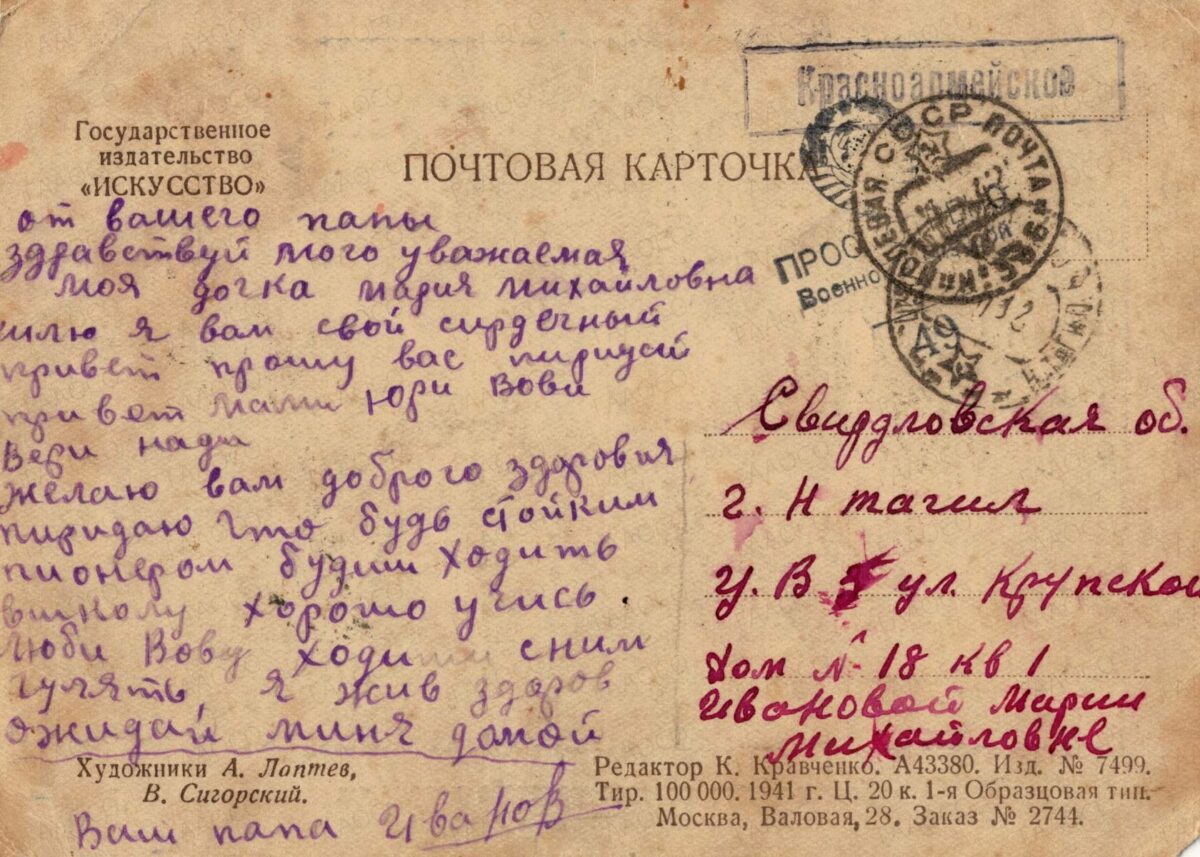 Красноармейское
Государственное
издательство
«ИСКУССТВО»
ПОЧТОВАЯ КАРТОЧКА
СССР ПОЧТА
ПОЛЕВАЯ
ПРОС
Военно
49
от вашего папы
здравствуй мого уважаемая
моя дочка мария михайловна
шлю я вам свой сирдечный
привет прошу вас пиридай
привет мами юри Вови
Вери нади
желаю вам доброго здоровия
пиридаю что будь стойким
пионером будиш ходить
вшколу хорошо учись.
люби Вову ходи сним
гулять, я жив здоров
ожидай миня домой
Свирдловская об.
г. Н тагил
У. В З ул. Крупской
Дом № 18 кв 1
Ивановой Марии
Михайловне
Художники А. Лаптев,
В. Сигорский.
Ваш папа Иванов
Редактор К. Кравченко. А43380. Изд. № 7499.
Тир. 100 000. 1941 г. Ц. 20 к. 1-я Образцовая тип.
Москва, Валовая, 28. Заказ № 2744.